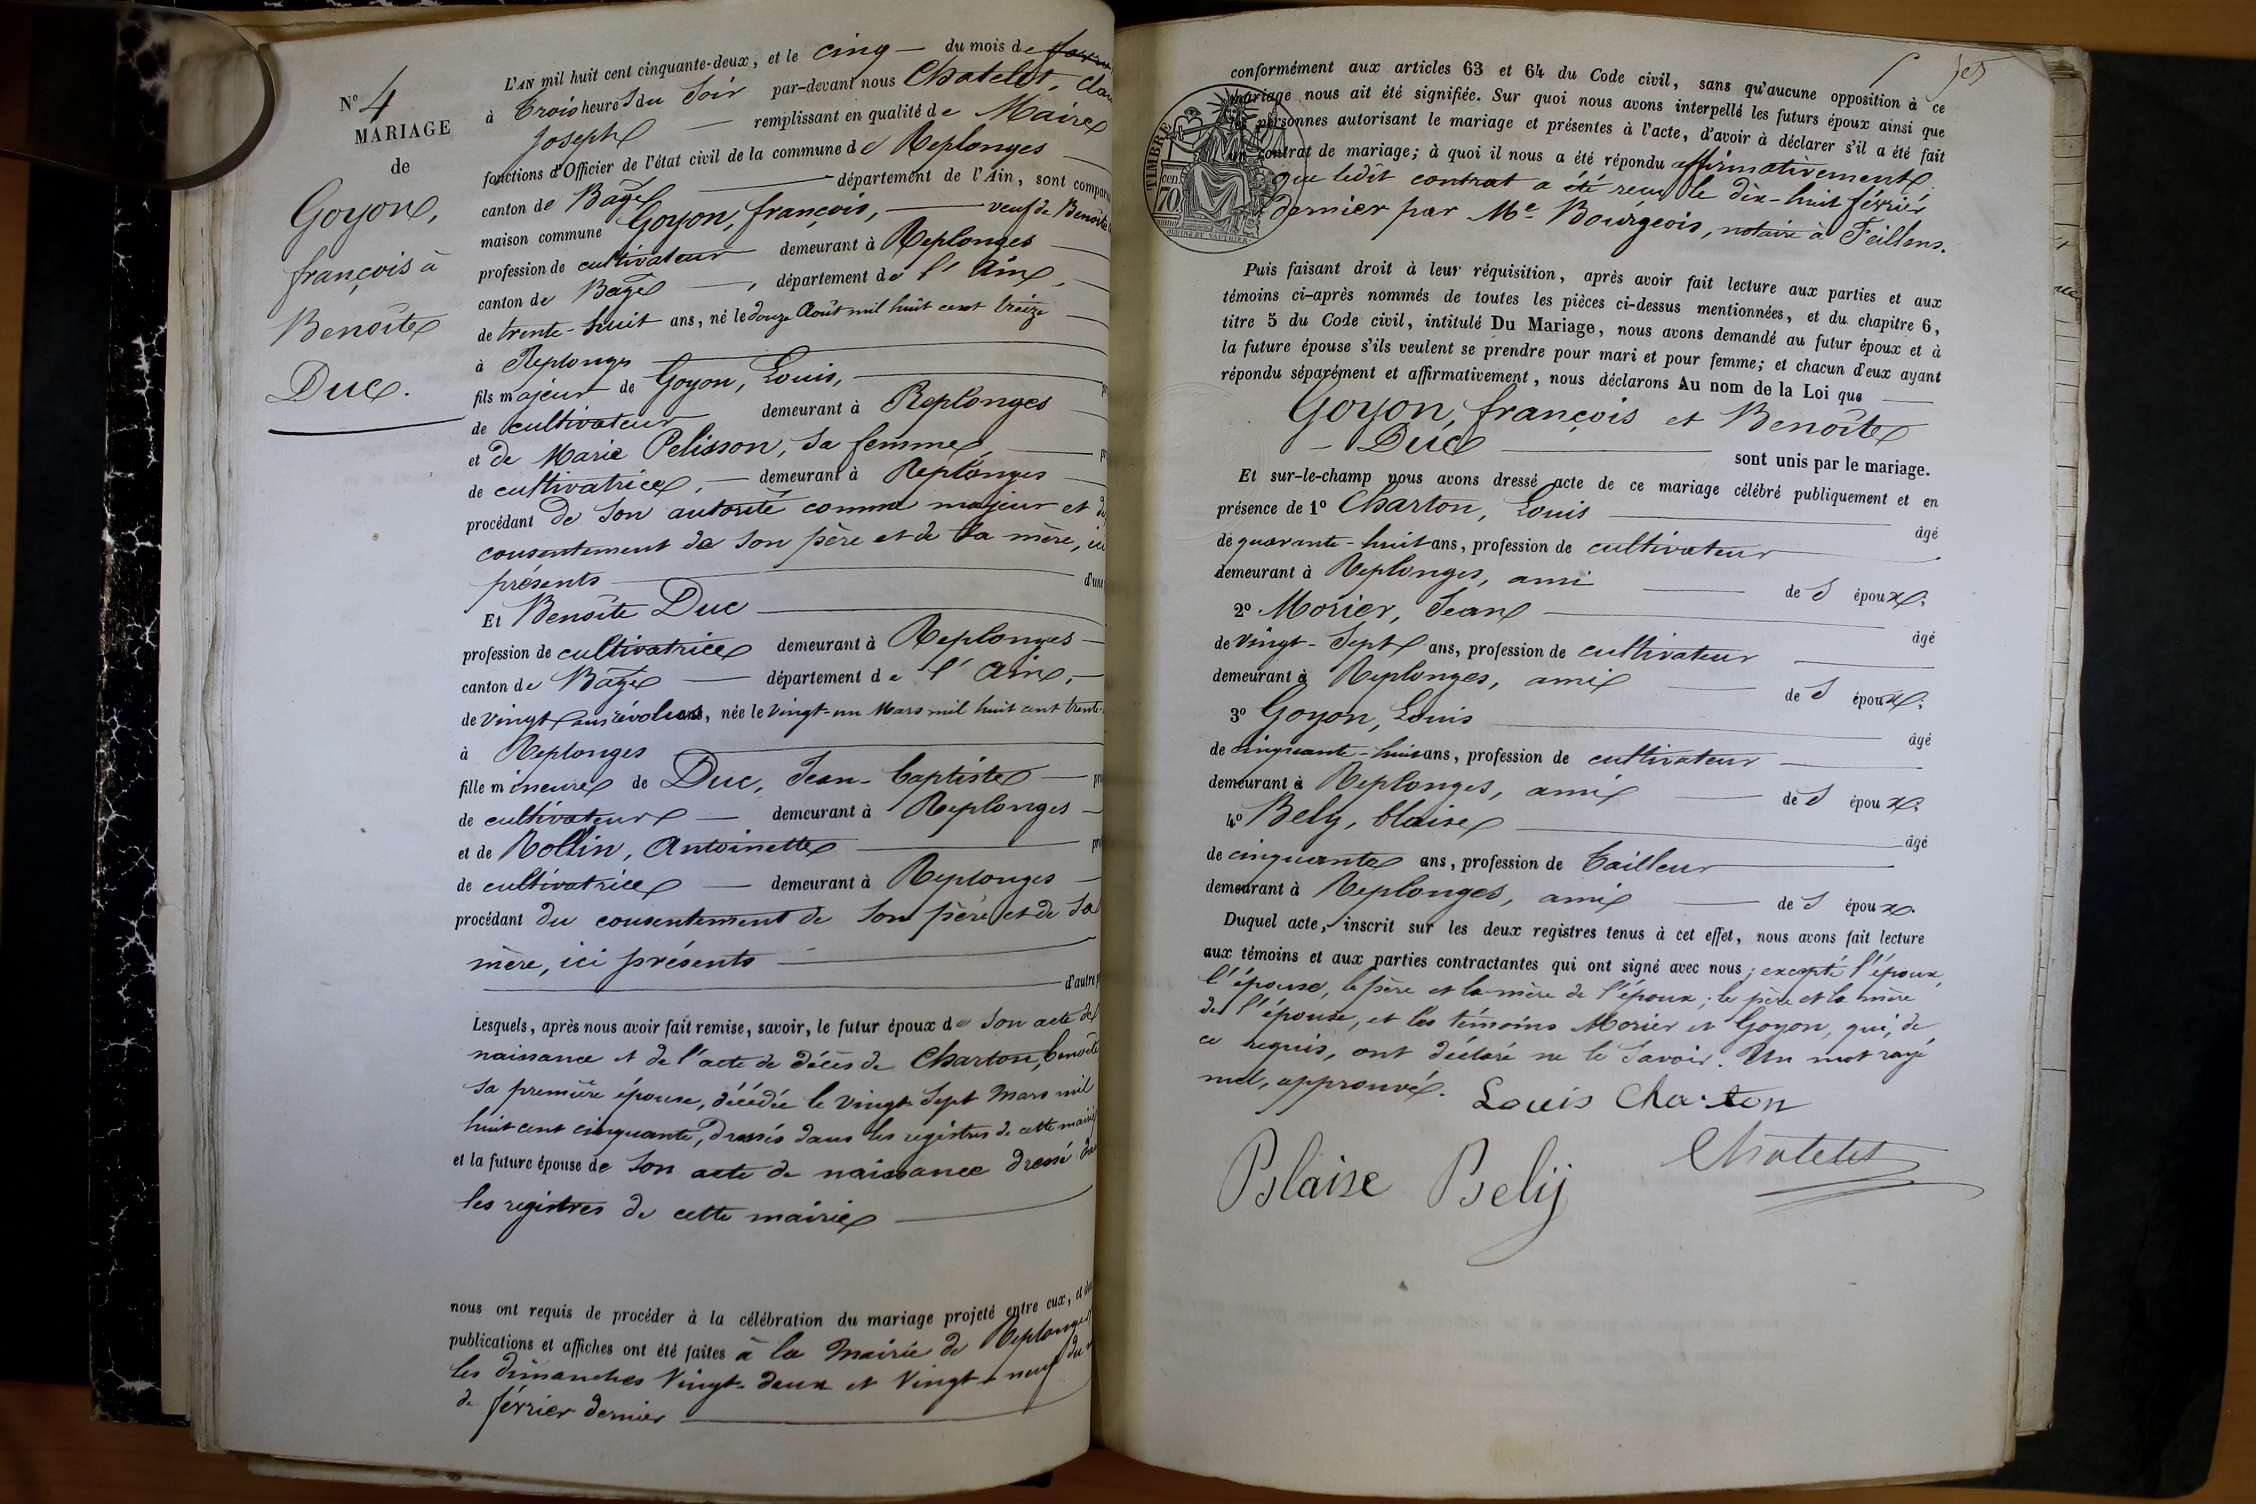 N° 4
MARIAGE
de
Goyon,
françois à
Benoîte
Duc.
L'AN mil huit cent cinquante-deux, et le cinq du mois de
à Trois heures du Soir par-devant nous Chatelet,
Joseph remplissant en qualité de Maire
fonctions d'Officier de l'état civil de la commune de Replonges
canton de Bâgé département de l'Ain, sont
maison commune Goyon, françois, veuf de Benoîte
profession de cultivateur demeurant à Replonges
canton de Bâgé, département de l'Ain,
de trente-huit ans, né le douze Août mil huit cent treize
à Replonges
fils majeur de Goyon, Louis,
de cultivateur demeurant à Replonges
et de Marie Pelisson, sa femme
de cultivatrice, demeurant à Replonges
procédant de son autorité comme majeur et
consentement de son père et de sa mère,
présents
Et Benoîte Duc
profession de cultivatrice demeurant à Replonges
canton de Bâgé département de l'Ain,
de vingt ans révolus, née le vingt-un Mars mil huit cent trente-
à Replonges
fille mineure de Duc, Jean-baptiste
de cultivateur demeurant à Replonges
et de Rollin, Antoinette
de cultivatrice demeurant à Replonges
procédant du consentement de son père et de sa
mère, ici présents
d'autre
Lesquels, après nous avoir fait remise, savoir, le futur époux de son acte de
naissance et de l'acte de décès de Charton, benoîte
sa première épouse, décédée le vingt-sept Mars mil
huit cent cinquante, dressés dans les registres de cette mairie
et la future épouse de son acte de naissance dressé
les registres de cette mairie
nous ont requis de procéder à la célébration du mariage projeté entre eux, et
publications et affiches ont été faites à la Mairie de Replonges
les dimanches vingt-deux et vingt-neuf du
de février dernier
conformément aux articles 63 et 64 du Code civil, sans qu'aucune opposition à ce
mariage nous ait été signifiée. Sur quoi nous avons interpellé les futurs époux ainsi que
les personnes autorisant le mariage et présentes à l'acte, d'avoir à déclarer s'il a été fait
un contrat de mariage; à quoi il nous a été répondu affirmativement
que ledit contrat a été reçu le dix-huit février
dernier par Me Bourgeois, notaire à Feillens.
TIMBRE
70
Puis faisant droit à leur réquisition, après avoir fait lecture aux parties et aux
témoins ci-après nommés de toutes les pièces ci-dessus mentionnées, et du chapitre 6,
titre 5 du Code civil, intitulé Du Mariage, nous avons demandé au futur époux et à
la future épouse s'ils veulent se prendre pour mari et pour femme; et chacun d'eux ayant
répondu séparément et affirmativement, nous déclarons Au nom de la Loi que
Goyon, françois et Benoîte
Duc
sont unis par le mariage.
Et sur-le-champ nous avons dressé acte de ce mariage célébré publiquement et en
présence de 1° Charton, Louis âgé
de quarante-huit ans, profession de cultivateur
demeurant à Replonges, ami des époux;
2° Morier, Jean âgé
de vingt-sept ans, profession de cultivateur
demeurant à Replonges, ami des époux;
3° Goyon, Louis âgé
de cinquante-huit ans, profession de cultivateur
demeurant à Replonges, ami des époux;
4° Bely, blaise âgé
de cinquante ans, profession de tailleur
demeurant à Replonges, ami des époux.
Duquel acte, inscrit sur les deux registres tenus à cet effet, nous avons fait lecture
aux témoins et aux parties contractantes qui ont signé avec nous; excepté l'époux,
l'épouse, le père et la mère de l'époux; le père et la mère
de l'épouse, et les témoins Morier et Goyon, qui, de
ce requis, ont déclaré ne le savoir. Un mot rayé
nul, approuvé.
Louis Charton
Chatelet
Blaise Belij